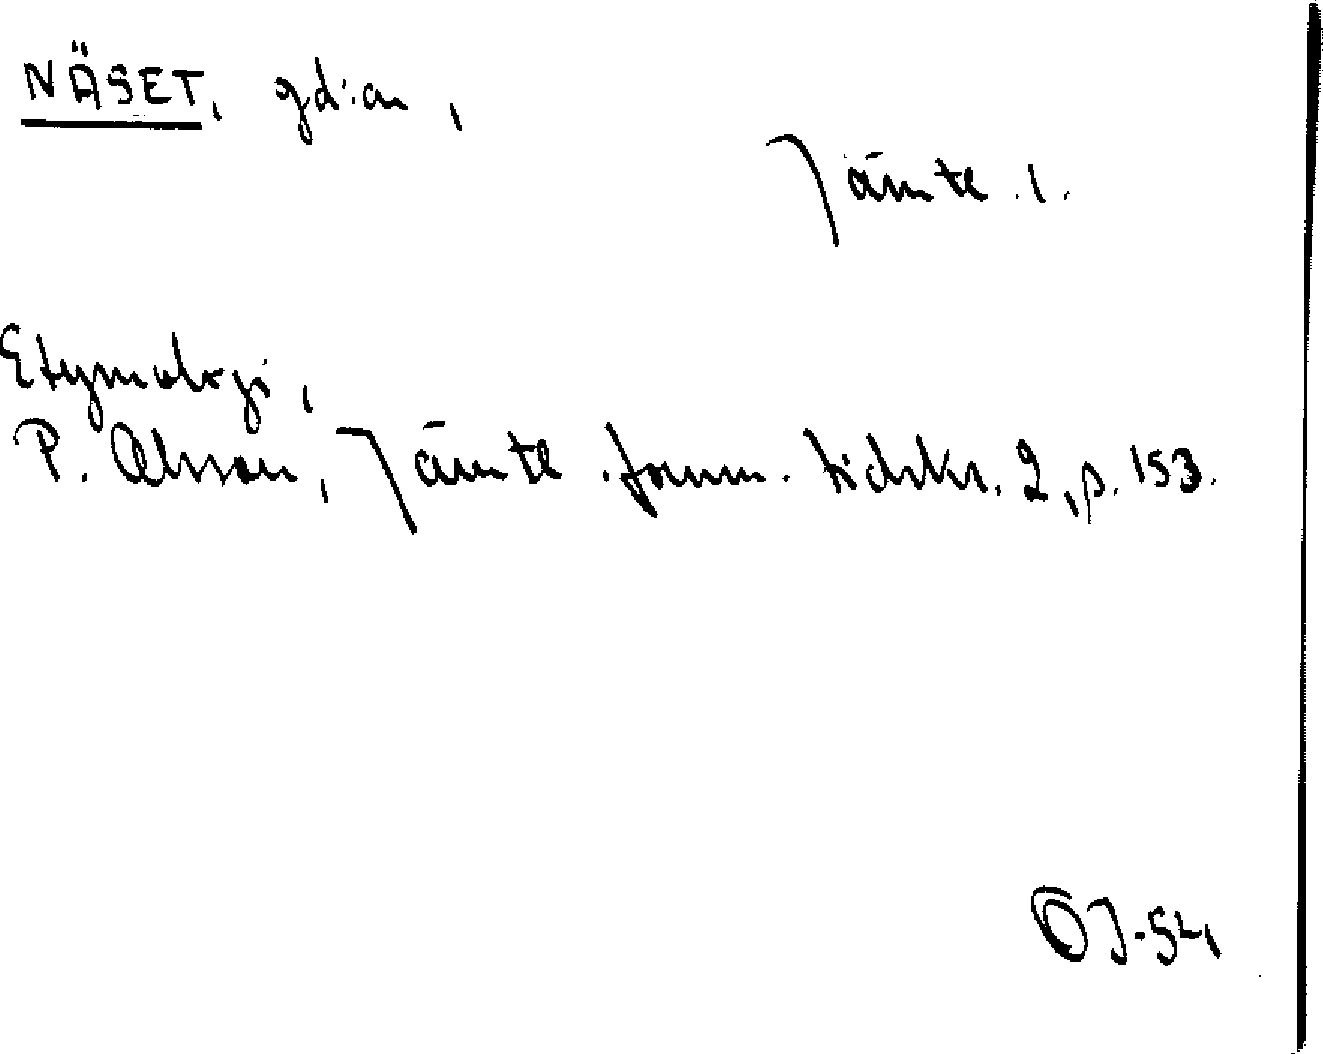 NÄSET, gd:ar,
Jämtl.
Etymologi,
P. Olsson, Jämtl. fornm. tidskr. 2, p. 153.
ÖJ-54